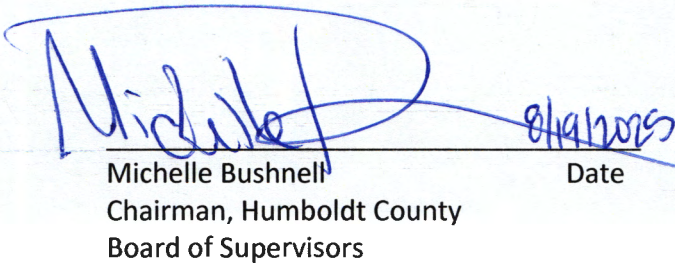 Michelle 8/19/2025
Michelle Bushnell Date
Chairman, Humboldt County
Board of Supervisors